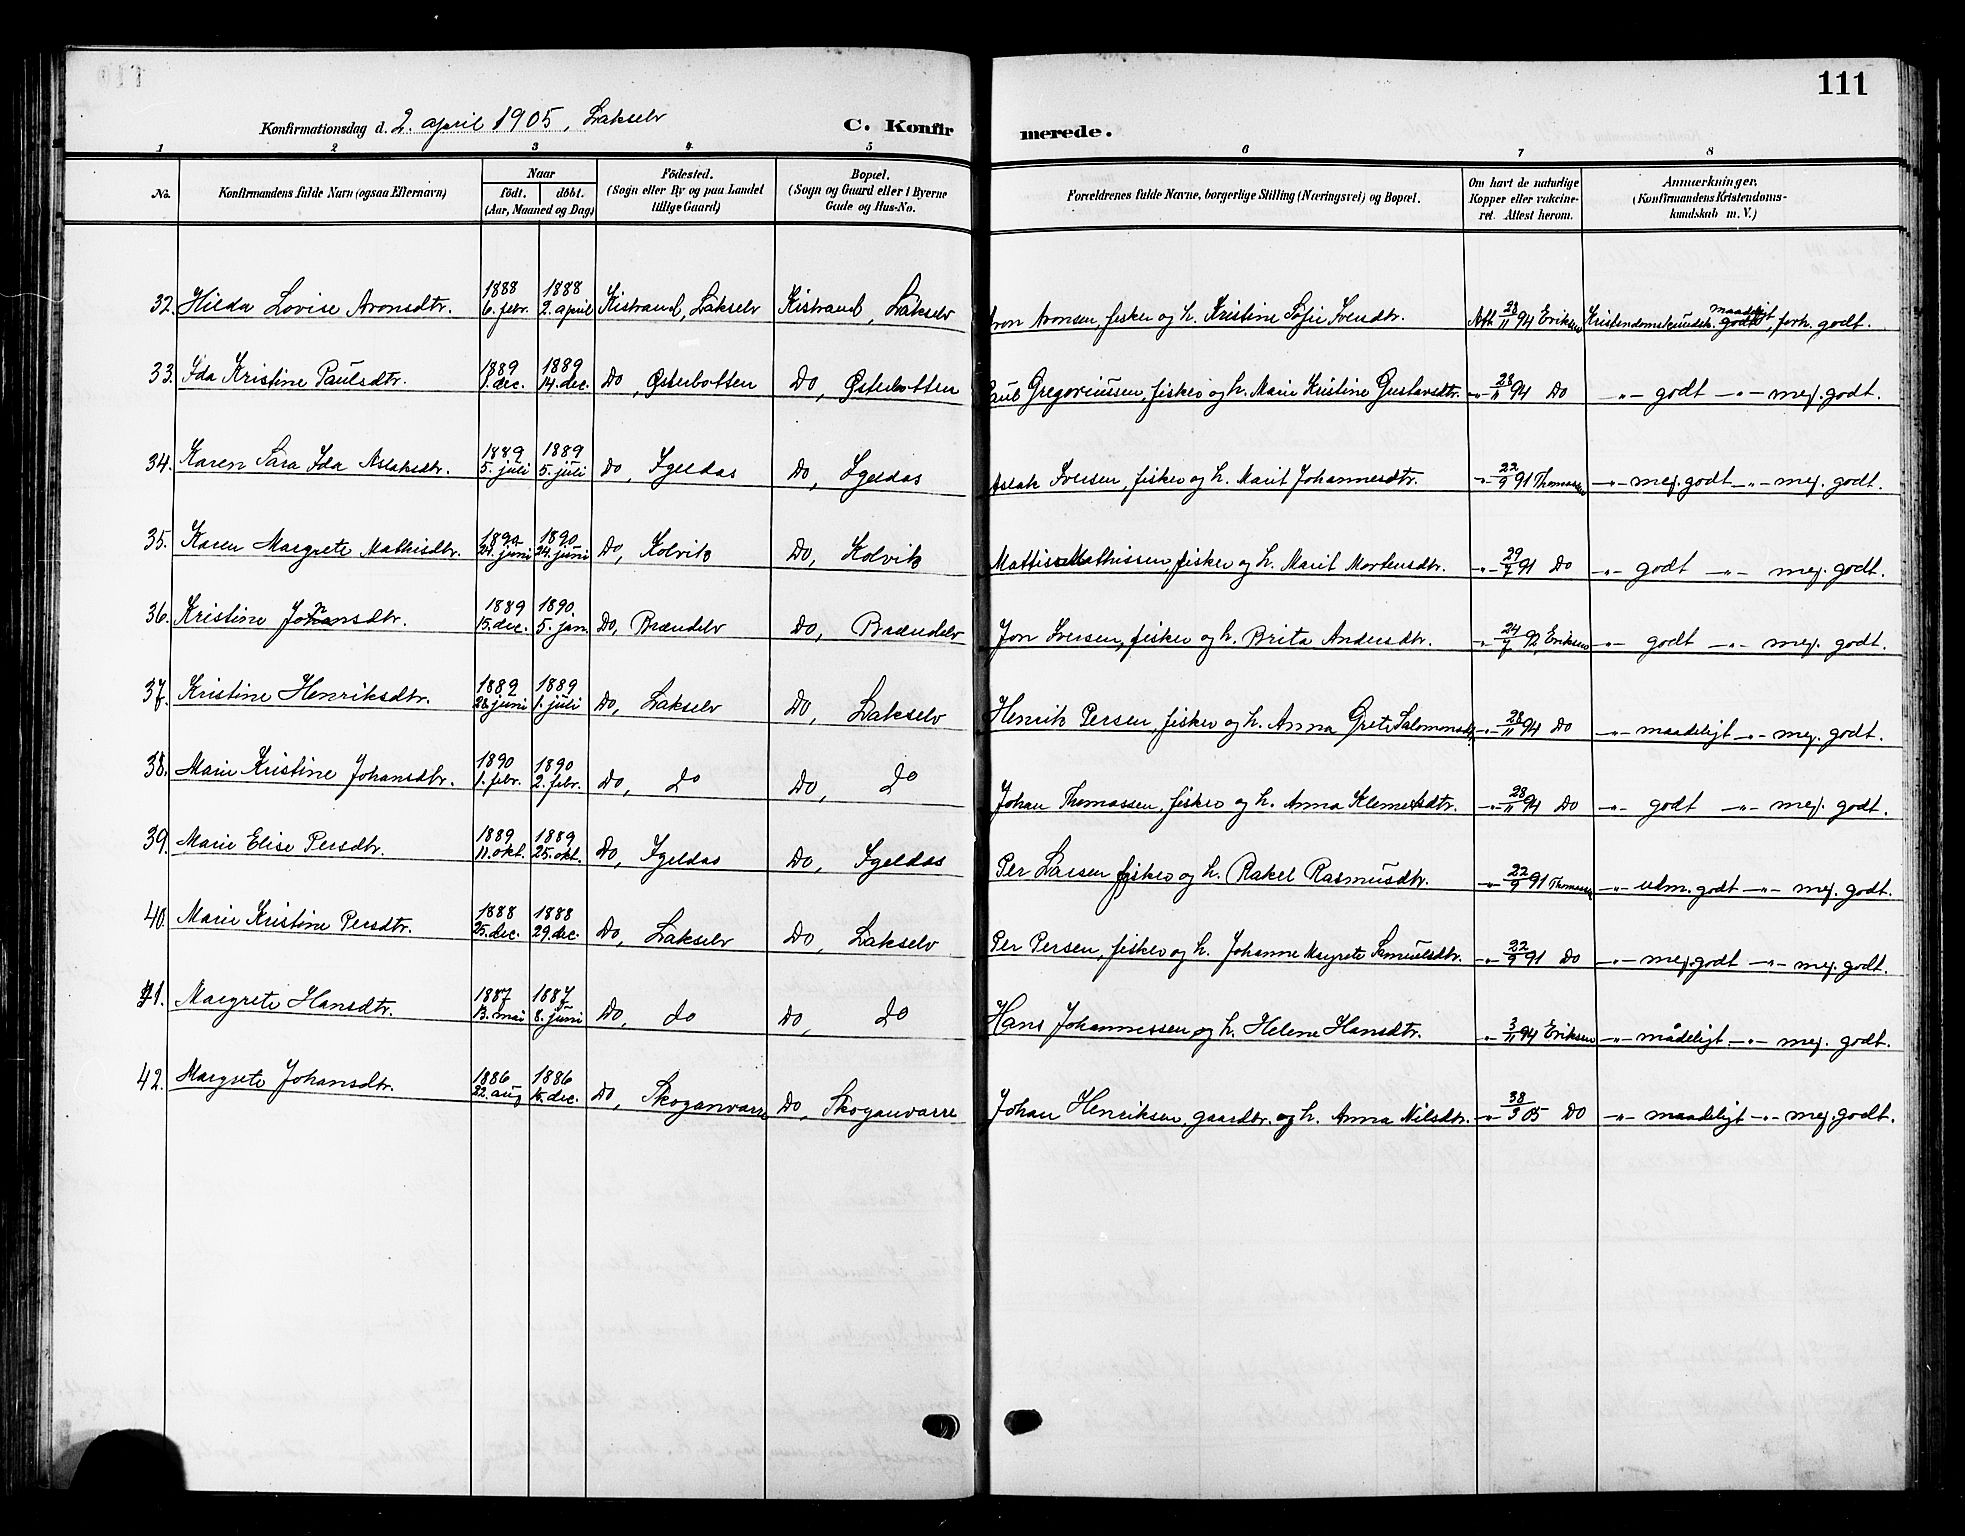 111
Konfirmationsdag d. 2. april 1905, Lakselv C. Konfirmerede.
1 2 3 4 5 6 7 8
No. Konfirmandens fulde Navn (ogsaa Efternavn) Naar født. døbt. (Aar, Maaned og Dag) Födested. (Sogn eller By og paa Landet tillige Gaard) Bopæl. (Sogn og Gaard eller i Byerne Gade og Hus-No. Forældrenes fulde Navne, borgerlige Stilling (Næringsvei) og Bopæl. Om havt de naturlige Kopper eller vakcineret. Attest herom. Anmærkninger. (Konfirmandens Kristendomskundskab m. V.)
32. Hilda Lovise Aronsdtr. 1888 6. febr. 1888 2. april Kistrand, Lakselv Kistrand, Lakselv Aron Aronsen, fisker og h. Kristine Sofie Iversdtr. Att. 28/11 94 Eriksen Kristendomskundsk. maadeligt godt, forh. godt.
33. Ida Kristine Paulsdtr. 1889 1. dec. 1889 14. dec. Do, Østerbotten Do, Østerbotten Paul Gregoriussen, fisker og h. Marie Kristine Gustavsdtr. -"- 28/11 94 Do -"- godt -"- meg. godt.
34. Karen Sara Ida Aslaksdtr. 1889 5. juli 1889 5. juli Do, Igeldas Do, Igeldas Aslak Iversen, fisker og h. Marit Johannesdtr. -"- 22/9 91 Thomassen -"- meg. godt -"- meg. godt.
35. Karen Margrete Mathisdtr. 1890 24. juni 1890 24. juni Do, Kolvik Do, Kolvik Mattis Mathissen, fisker og h. Marit Mortensdtr. -"- 29/7 91 Do -"- godt -"- meg. godt.
36. Kristine Johansdtr. 1889 15. dec. 1890 5. jan. Do, Brændelv Do, Brændelv Jon Iversen, fisker og h. Brita Andersdtr. -"- 24/7 92, Eriksen -"- godt -"- meg. godt.
37. Kristine Henriksdtr. 1889 28. juni 1889 1. juli Do, Lakselv Do, Lakselv Henrik Persen, fisker og h. Anna Grete Salomonsdtr. -"- 28/11 94 Do -"- maadeligt -"- meg. godt.
38. Marie Kristine Johansdtr. 1890 1. febr. 1890 2. febr. Do, do Do, do Johan Thomassen, fisker og h. Anna Klemetsdtr. -"- 28/11 94 Do -"- godt -"- meg. godt.
39. Marie Elise Persdtr. 1889 11. okt. 1889 25. okt. Do, Igeldas Do, Igeldas Per Larsen fisker og h. Rakel Rasmusdtr. -"- 22/9 91 Thomassen -"- udm. godt -"- meg. godt.
40. Marie Kristine Persdtr. 1888 25. dec. 1888 29. dec. Do, Lakselv Do, Lakselv Per Persen, fisker og h. Johanne Margrete Samuelsdtr. -"- 22/9 91 Do -"- meg. godt -"- meg. godt.
41. Margrete Hansdtr. 1887 13. mai 1887 8. juni Do, do Do, do Hans Johannessen og h. Helene Hansdtr. -"- 3/11 94 Eriksen -"- mådeligt -"- meg. godt.
42. Margrete Johansdtr. 1886 22. aug 1886 15. dec. Do, Skoganvarre Do, Skoganvarre Johan Henriksen, gaardbr. og h. Anna Nilsdtr. -"- 38/3 05 Do -"- maadeligt -"- meg. godt.